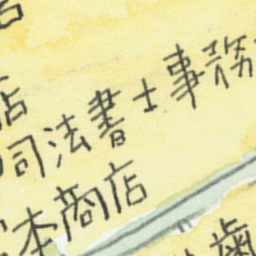 店
司法書士事務
本商店
歯